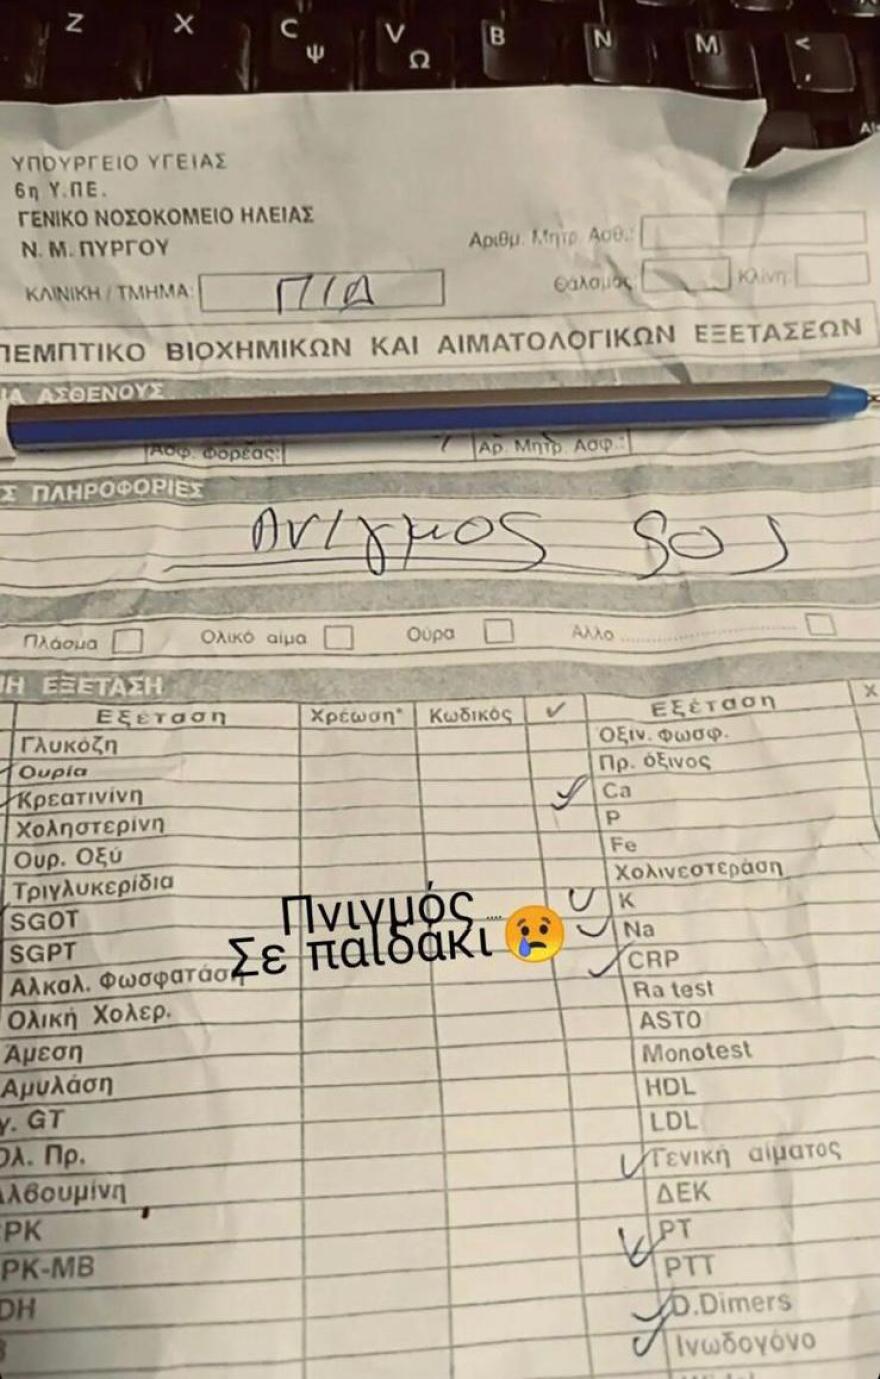 Z X C Ψ V Ω B N M < ,
ΥΠΟΥΡΓΕΙΟ ΥΓΕΙΑΣ
6η Υ.ΠΕ.
ΓΕΝΙΚΟ ΝΟΣΟΚΟΜΕΙΟ ΗΛΕΙΑΣ
Ν. Μ. ΠΥΡΓΟΥ
Αριθμ. Μητρ. Ασθ.:
ΚΛΙΝΙΚΗ / ΤΜΗΜΑ: Π/Δ
Θάλαμος: Κλίνη:
ΠΕΜΠΤΙΚΟ ΒΙΟΧΗΜΙΚΩΝ ΚΑΙ ΑΙΜΑΤΟΛΟΓΙΚΩΝ ΕΞΕΤΑΣΕΩΝ
ΙΑ ΑΣΘΕΝΟΥΣ
Ασφ. Φορέας: Αρ. Μητρ. Ασφ.:
Σ ΠΛΗΡΟΦΟΡΙΕΣ
Πνιγμος SOS
Πλάσμα Ολικό αίμα Ούρα Άλλο
Η ΕΞΕΤΑΣΗ
Εξέταση Χρέωση* Κωδικός ✓ Εξέταση Χ
Γλυκόζη Οξίν. Φωσφ.
Ουρία Πρ. όξινος
Κρεατινίνη Ca
Χοληστερίνη P
Ουρ. Οξύ Fe
Τριγλυκερίδια Χολινεστεράση
SGOT K
SGPT Na
Πνιγμός ....
Σε παιδάκι 😢
Αλκαλ. Φωσφατάση CRP
Ολική Χολερ. Ra test
Άμεση ASTO
Αμυλάση Monotest
γ. GT HDL
Ολ. Πρ. LDL
Αλβουμίνη Γενική αίματος
PK ΔΕΚ
PK-MB PT
DH PTT
D.Dimers
Ινωδογόνο